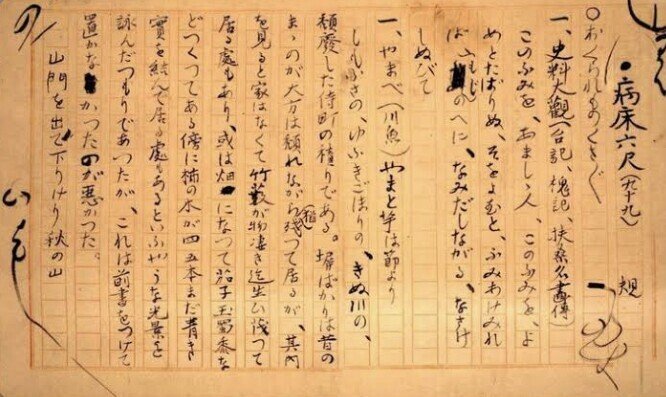 ●病床六尺(九十九) 規
○おくられものくさ〴〵
一、史料大觀(台記、槐記、扶桑名畫傳)
このふみを、あましゝ人、このふみを、よ
めとたばりぬ、そをよむと、ふみあけみれ
ば、もじのへに、なみだしながる、なさけ
しぬびて
一、やまべ(川魚)やまと芋は節より
しもふさの、ゆふきごほりの、きぬ川の、
頽廢した侍町の積りである。塀ばかりは昔の
まゝのが大方は頽れながら猶殘つて居るが、其内
を見ると家はなくて竹藪が物凄き迄生ひ茂つて
居る處もあり、或は畑になつて茄子玉蜀黍な
どつくつてある傍に柿の木が四五本まだ青き
實を結んで居る處もあるといふやうな光景を
詠んだつもりであつたが、これは前書をつけて
置かなかつたのが悪かつた。
山門を出て下りけり秋の山